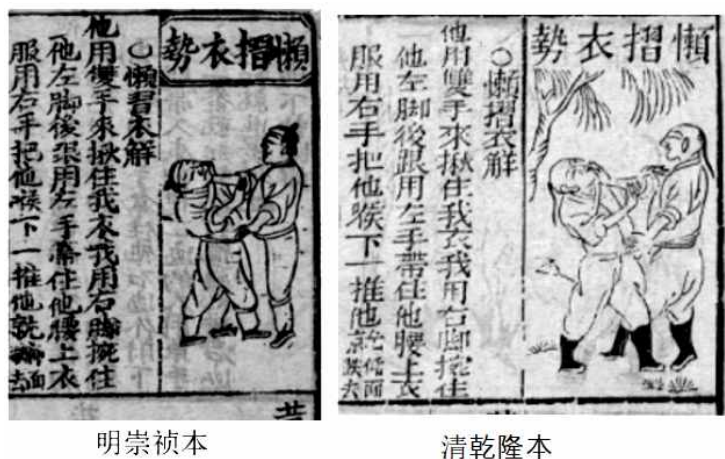 懶摺衣勢
○懶習衣解
他用雙手來揪住我衣我用右脚挽住
他左脚後跟用左手帶住他腰上衣
服用右手把他喉下一推他就
明崇祯本
懶摺衣勢
○懶摺衣解
他用雙手來揪住我衣我用右脚挽住
他左脚後跟用左手帶住他腰上衣
服用右手把他喉下一推他就
清乾隆本